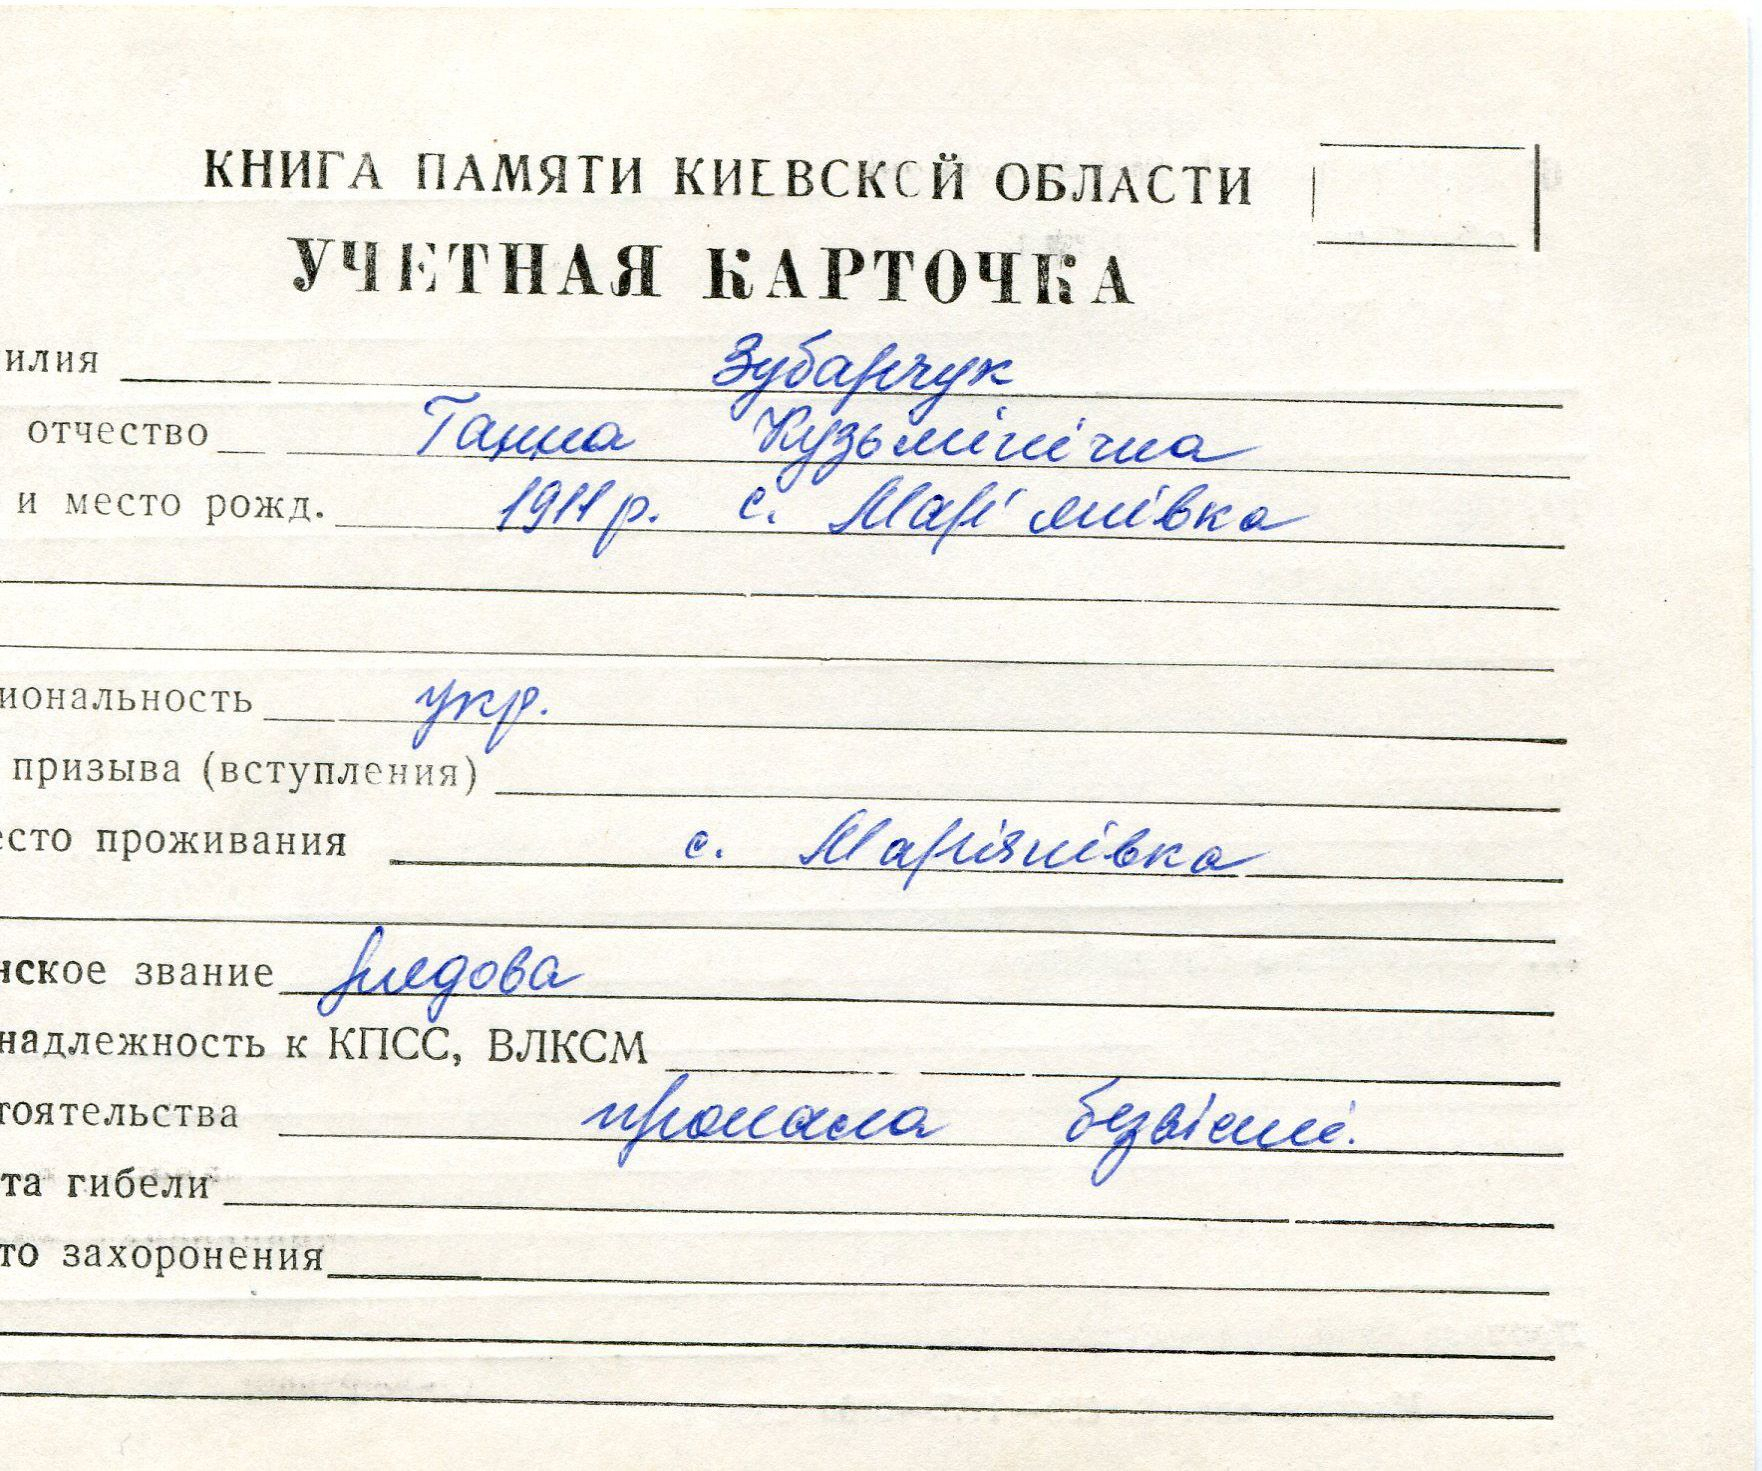 КНИГА ПАМЯТИ КИЕВСКОЙ ОБЛАСТИ
УЧЕТНАЯ КАРТОЧКА
илия Зубарчук
отчество Ганна Кузьмінічна
и место рожд. 1911 р. с. Мар'янівка
иональность укр.
призыва (вступления)
есто проживания с. Маріянівка
нское звание рядова
надлежность к КПСС, ВЛКСМ
тоятельства пропала безвісти.
та гибели
то захоронения